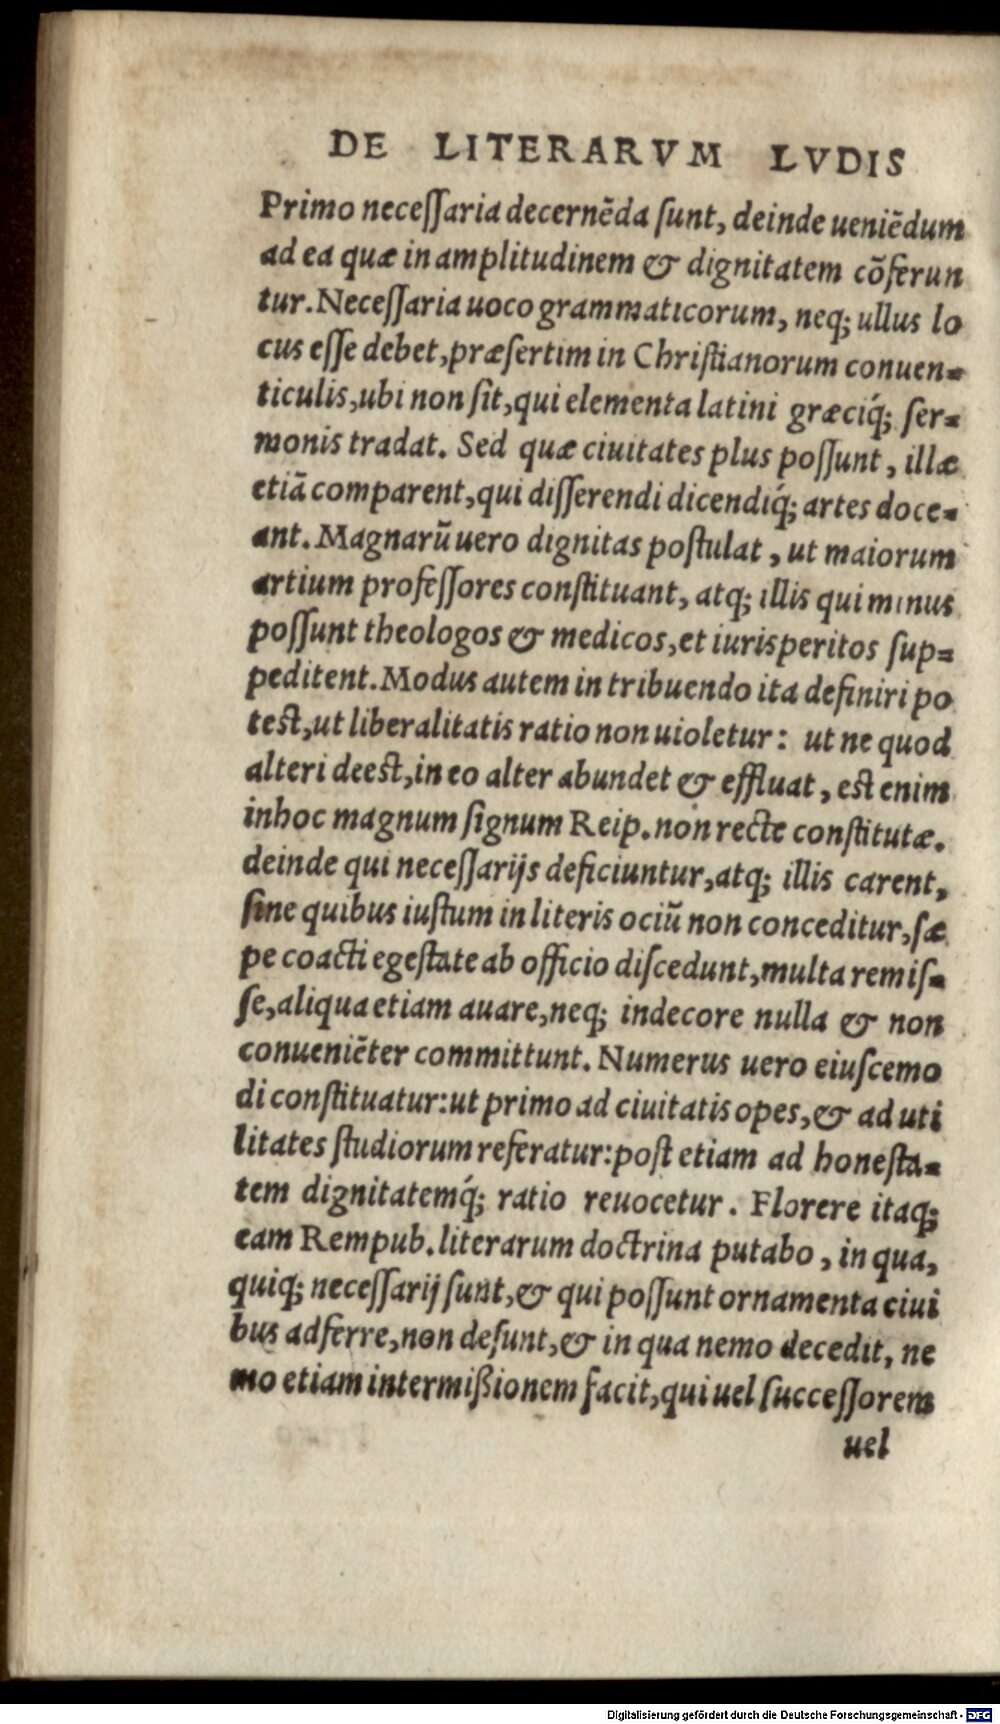 DE LITERARVM LVDIS
Primo neceſſaria decernẽda ſunt, deinde ueniẽdum
ad ea quæ in amplitudinem & dignitatem cõferun
tur. Neceſſaria uoco grammaticorum, neq; ullus lo
cus eſſe debet, præſertim in Chriſtianorum conuen-
ticulis, ubi non ſit, qui elementa latini græciq́; ſer-
monis tradat. Sed quæ ciuitates plus poſſunt, illæ
etiã comparent, qui diſſerendi dicendiq́; artes doce-
ant. Magnarũ uero dignitas poſtulat, ut maiorum
artium profeſſores conſtituant, atq; illis qui minus
poſſunt theologos & medicos, et iurisperitos ſup-
peditent. Modus autem in tribuendo ita definiri po
test, ut liberalitatis ratio non uioletur: ut ne quod
alteri deest, in eo alter abundet & effluat, est enim
inhoc magnum ſignum Reip. non recte conſtitutæ.
deinde qui neceſſarijs deficiuntur, atq; illis carent,
ſine quibus iuſtum in literis ociũ non conceditur, ſæ
pe coacti egeſtate ab officio diſcedunt, multa remiſ-
ſe, aliqua etiam auare, neq; indecore nulla & non
conueniẽter committunt. Numerus uero eiuſcemo
di conſtituatur: ut primo ad ciuitatis opes, & ad uti
litates ſtudiorum referatur: poſt etiam ad honeſta-
tem dignitatemq́; ratio reuocetur. Florere itaq;
eam Rempub. literarum doctrina putabo, in qua,
quiq; neceſſarij ſunt, & qui poſſunt ornamenta ciui
bus adferre, non deſunt, & in qua nemo decedit, ne
mo etiam intermißionem facit, qui uel ſucceſſorem
uel
Digitalisierung gefördert durch die Deutsche Forschungsgemeinschaft - DFG